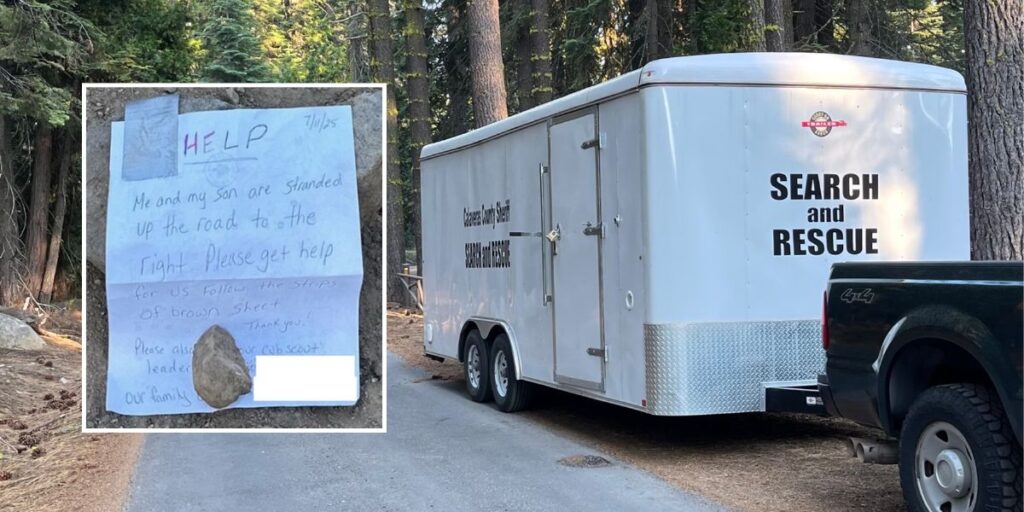 HELP
7/11/25
Me and my son are stranded
up the road to the
right. Please get help
for us follow the strips
of brown sheet
Thank you!
Please also our cub scout
leader
our family
TRAILER
SEARCH
and
RESCUE
Calaveras County Sheriff
SEARCH and RESCUE
4x4